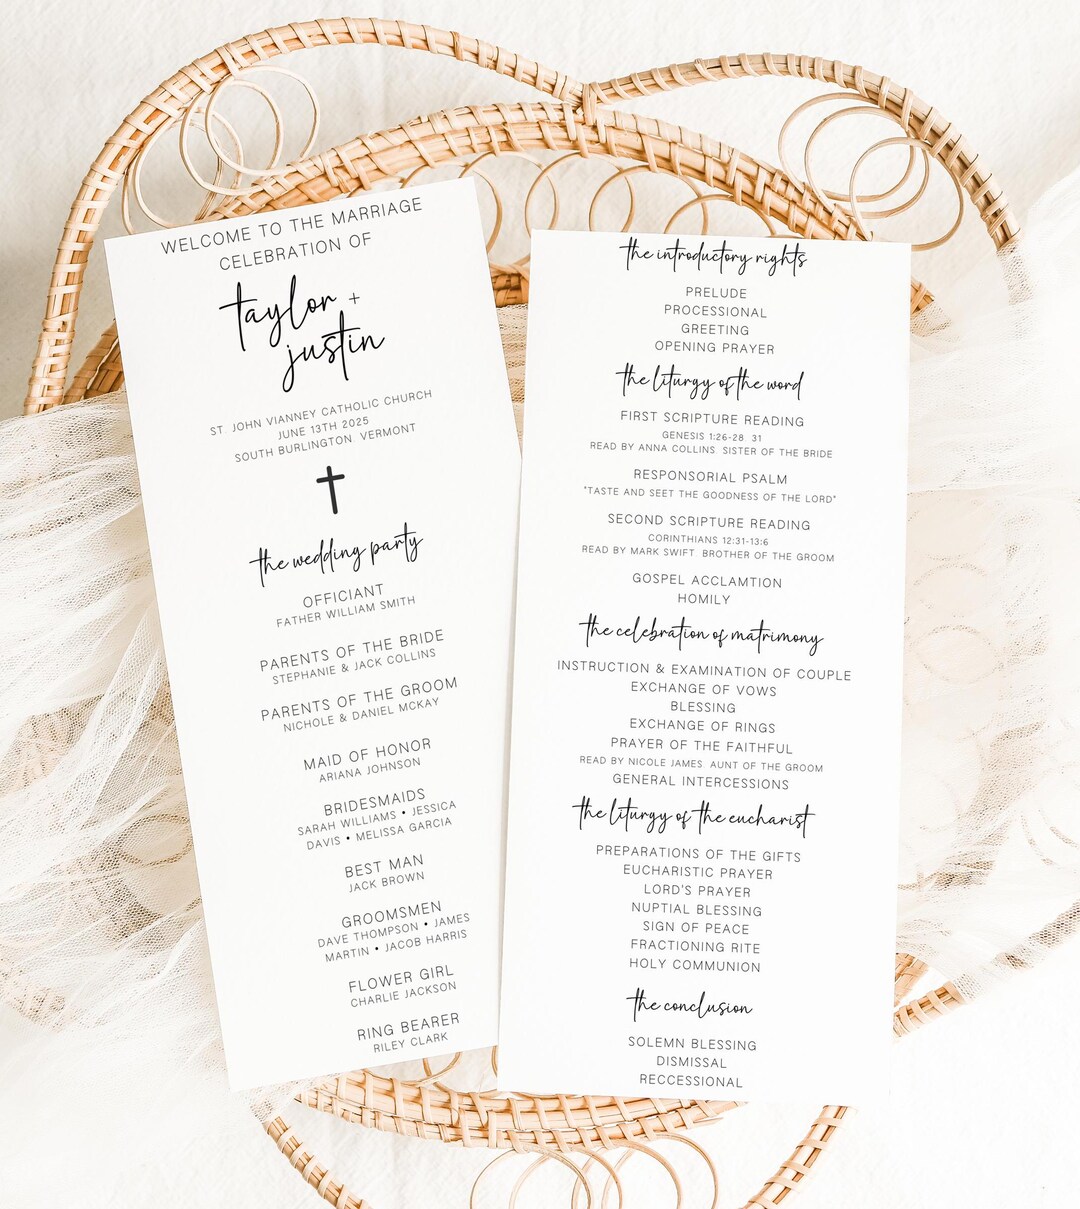 WELCOME TO THE MARRIAGE
CELEBRATION OF
taylor +
justin
ST. JOHN VIANNEY CATHOLIC CHURCH
JUNE 13TH 2025
SOUTH BURLINGTON VERMONT
the wedding party
OFFICIANT
FATHER WILLIAM SMITH
PARENTS OF THE BRIDE
STEPHANIE & JACK COLLINS
PARENTS OF THE GROOM
NICHOLE & DANIEL MCKAY
MAID OF HONOR
ARIANA JOHNSON
BRIDESMAIDS
SARAH WILLIAMS • JESSICA
DAVIS • MELISSA GARCIA
BEST MAN
JACK BROWN
GROOMSMEN
DAVE THOMPSON • JAMES
MARTIN • JACOB HARRIS
FLOWER GIRL
CHARLIE JACKSON
RING BEARER
RILEY CLARK
the introductory rights
PRELUDE
PROCESSIONAL
GREETING
OPENING PRAYER
the liturgy of the word
FIRST SCRIPTURE READING
GENESIS 1:26-28 31
READ BY ANNA COLLINS SISTER OF THE BRIDE
RESPONSORIAL PSALM
"TASTE AND SEET THE GOODNESS OF THE LORD"
SECOND SCRIPTURE READING
CORINTHIANS 12:31-13:6
READ BY MARK SWIFT BROTHER OF THE GROOM
GOSPEL ACCLAMTION
HOMILY
the celebration of matrimony
INSTRUCTION & EXAMINATION OF COUPLE
EXCHANGE OF VOWS
BLESSING
EXCHANGE OF RINGS
PRAYER OF THE FAITHFUL
READ BY NICOLE JAMES AUNT OF THE GROOM
GENERAL INTERCESSIONS
the liturgy of the eucharist
PREPARATIONS OF THE GIFTS
EUCHARISTIC PRAYER
LORD'S PRAYER
NUPTIAL BLESSING
SIGN OF PEACE
FRACTIONING RITE
HOLY COMMUNION
the conclusion
SOLEMN BLESSING
DISMISSAL
RECCESSIONAL